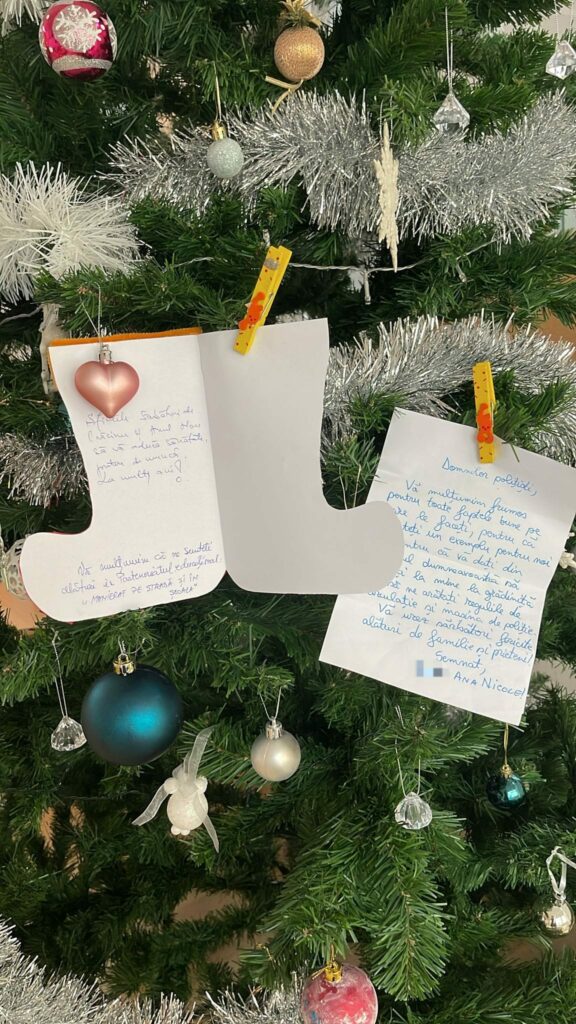 Sfintele Sărbători de
Crăciun și Anul Nou
să vă aducă sănătate,
putere de muncă.
La mulți ani!
Vă mulțumim că ne sunteți
alături în Parteneriatul educațional
"MANIERAT PE STRADĂ ȘI ÎN
ȘCOALĂ"
Domnilor polițiști,
Vă mulțumim frumos
pentru toate faptele bune pe
le faceți, pentru că
un exemplu pentru noi
că vă dați din
dumneavoastră să
la mine la grădiniță
ne arătați regulile de
și mașina de poliție.
Vă urez sărbători fericite
alături de familie și prieteni!
Semnat,
ANA NICOLE